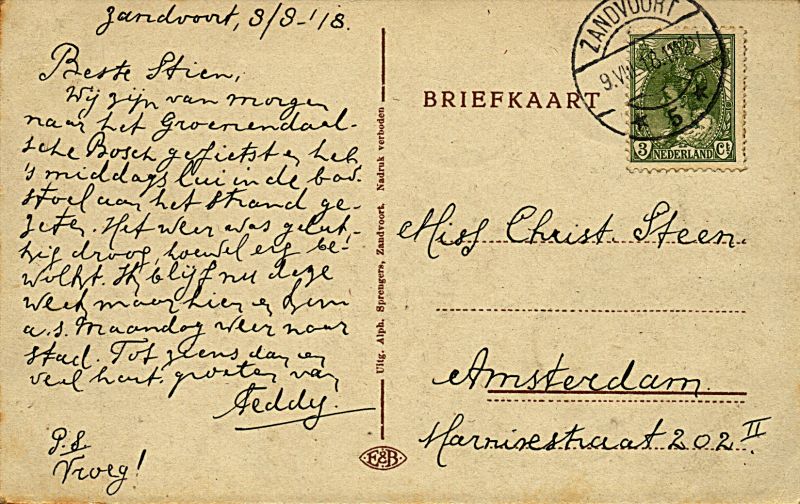 Zandvoort, 8/8-'18.
Beste Stien,
Wij zijn van morgen
naar het Groenendaal-
sche Bosch gefietst en heb
's middags lui in de bad-
stoel aan het strand ge-
zeten. Het weer was geluk-
kig droog, hoewel erg be-
wolkt. Ik blijf nu deze
week maar hier en kom
a.s. Maandag weer naar
stad. Tot ziens dan en
veel hart. groeten van
Teddy.
P.S.
Vroeg!
Uitg. Alph. Sprengers, Zandvoort. Nadruk verboden
E&B
BRIEFKAART
ZANDVOORT
9.VIII.18.
* 5 *
3 NEDERLAND Ct
Miss Christ. Steen.
Amsterdam.
Marnixstraat 202 II